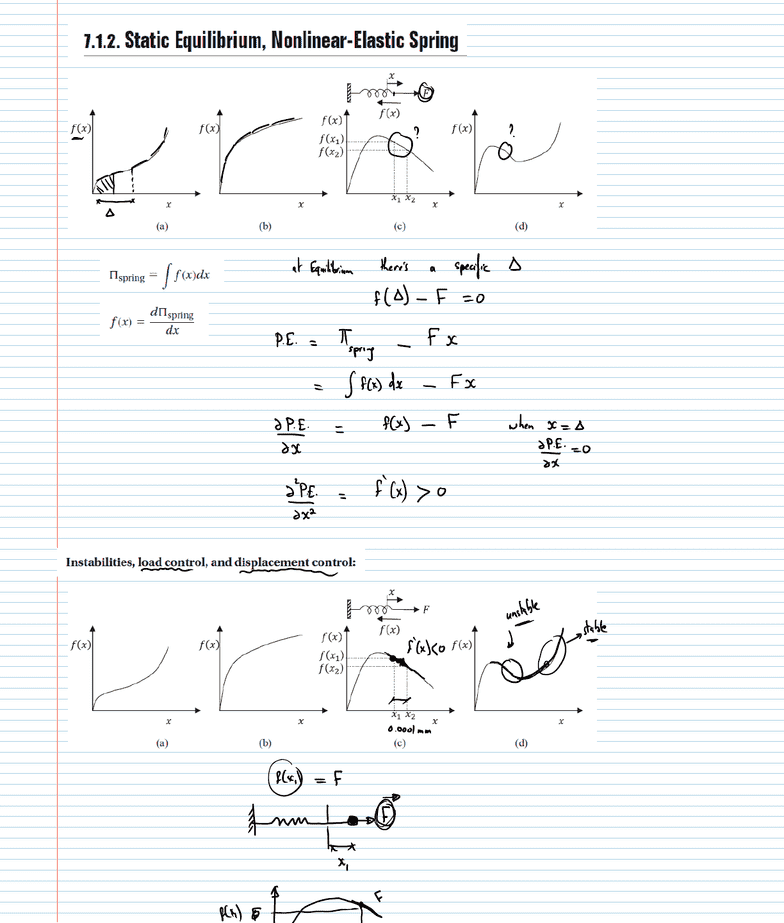 7.1.2. Static Equilibrium, Nonlinear-Elastic Spring
x
F
f(x)
f(x) f(x) f(x) f(x)
f(x₁) ? ?
f(x₂)
Δ x x x₁ x₂ x x
(a) (b) (c) (d)
Πspring = ∫ f(x)dx
f(x) = dΠspring/dx
at Equilibrium there's a specific Δ
f(Δ) – F = 0
P.E. = π spring – F x
= ∫ f(x) dx – Fx
∂P.E./∂x = f(x) – F when x = Δ
∂P.E./∂x = 0
∂²P.E./∂x² = f'(x) > 0
Instabilities, load control, and displacement control:
x
F
f(x)
unstable
stable
f(x) f(x) f(x) f'(x)<0 f(x)
f(x₁)
f(x₂)
x x x₁ x₂ x x
0.0001 mm
(a) (b) (c) (d)
f(x₁) = F
F
x₁
f(x) F F